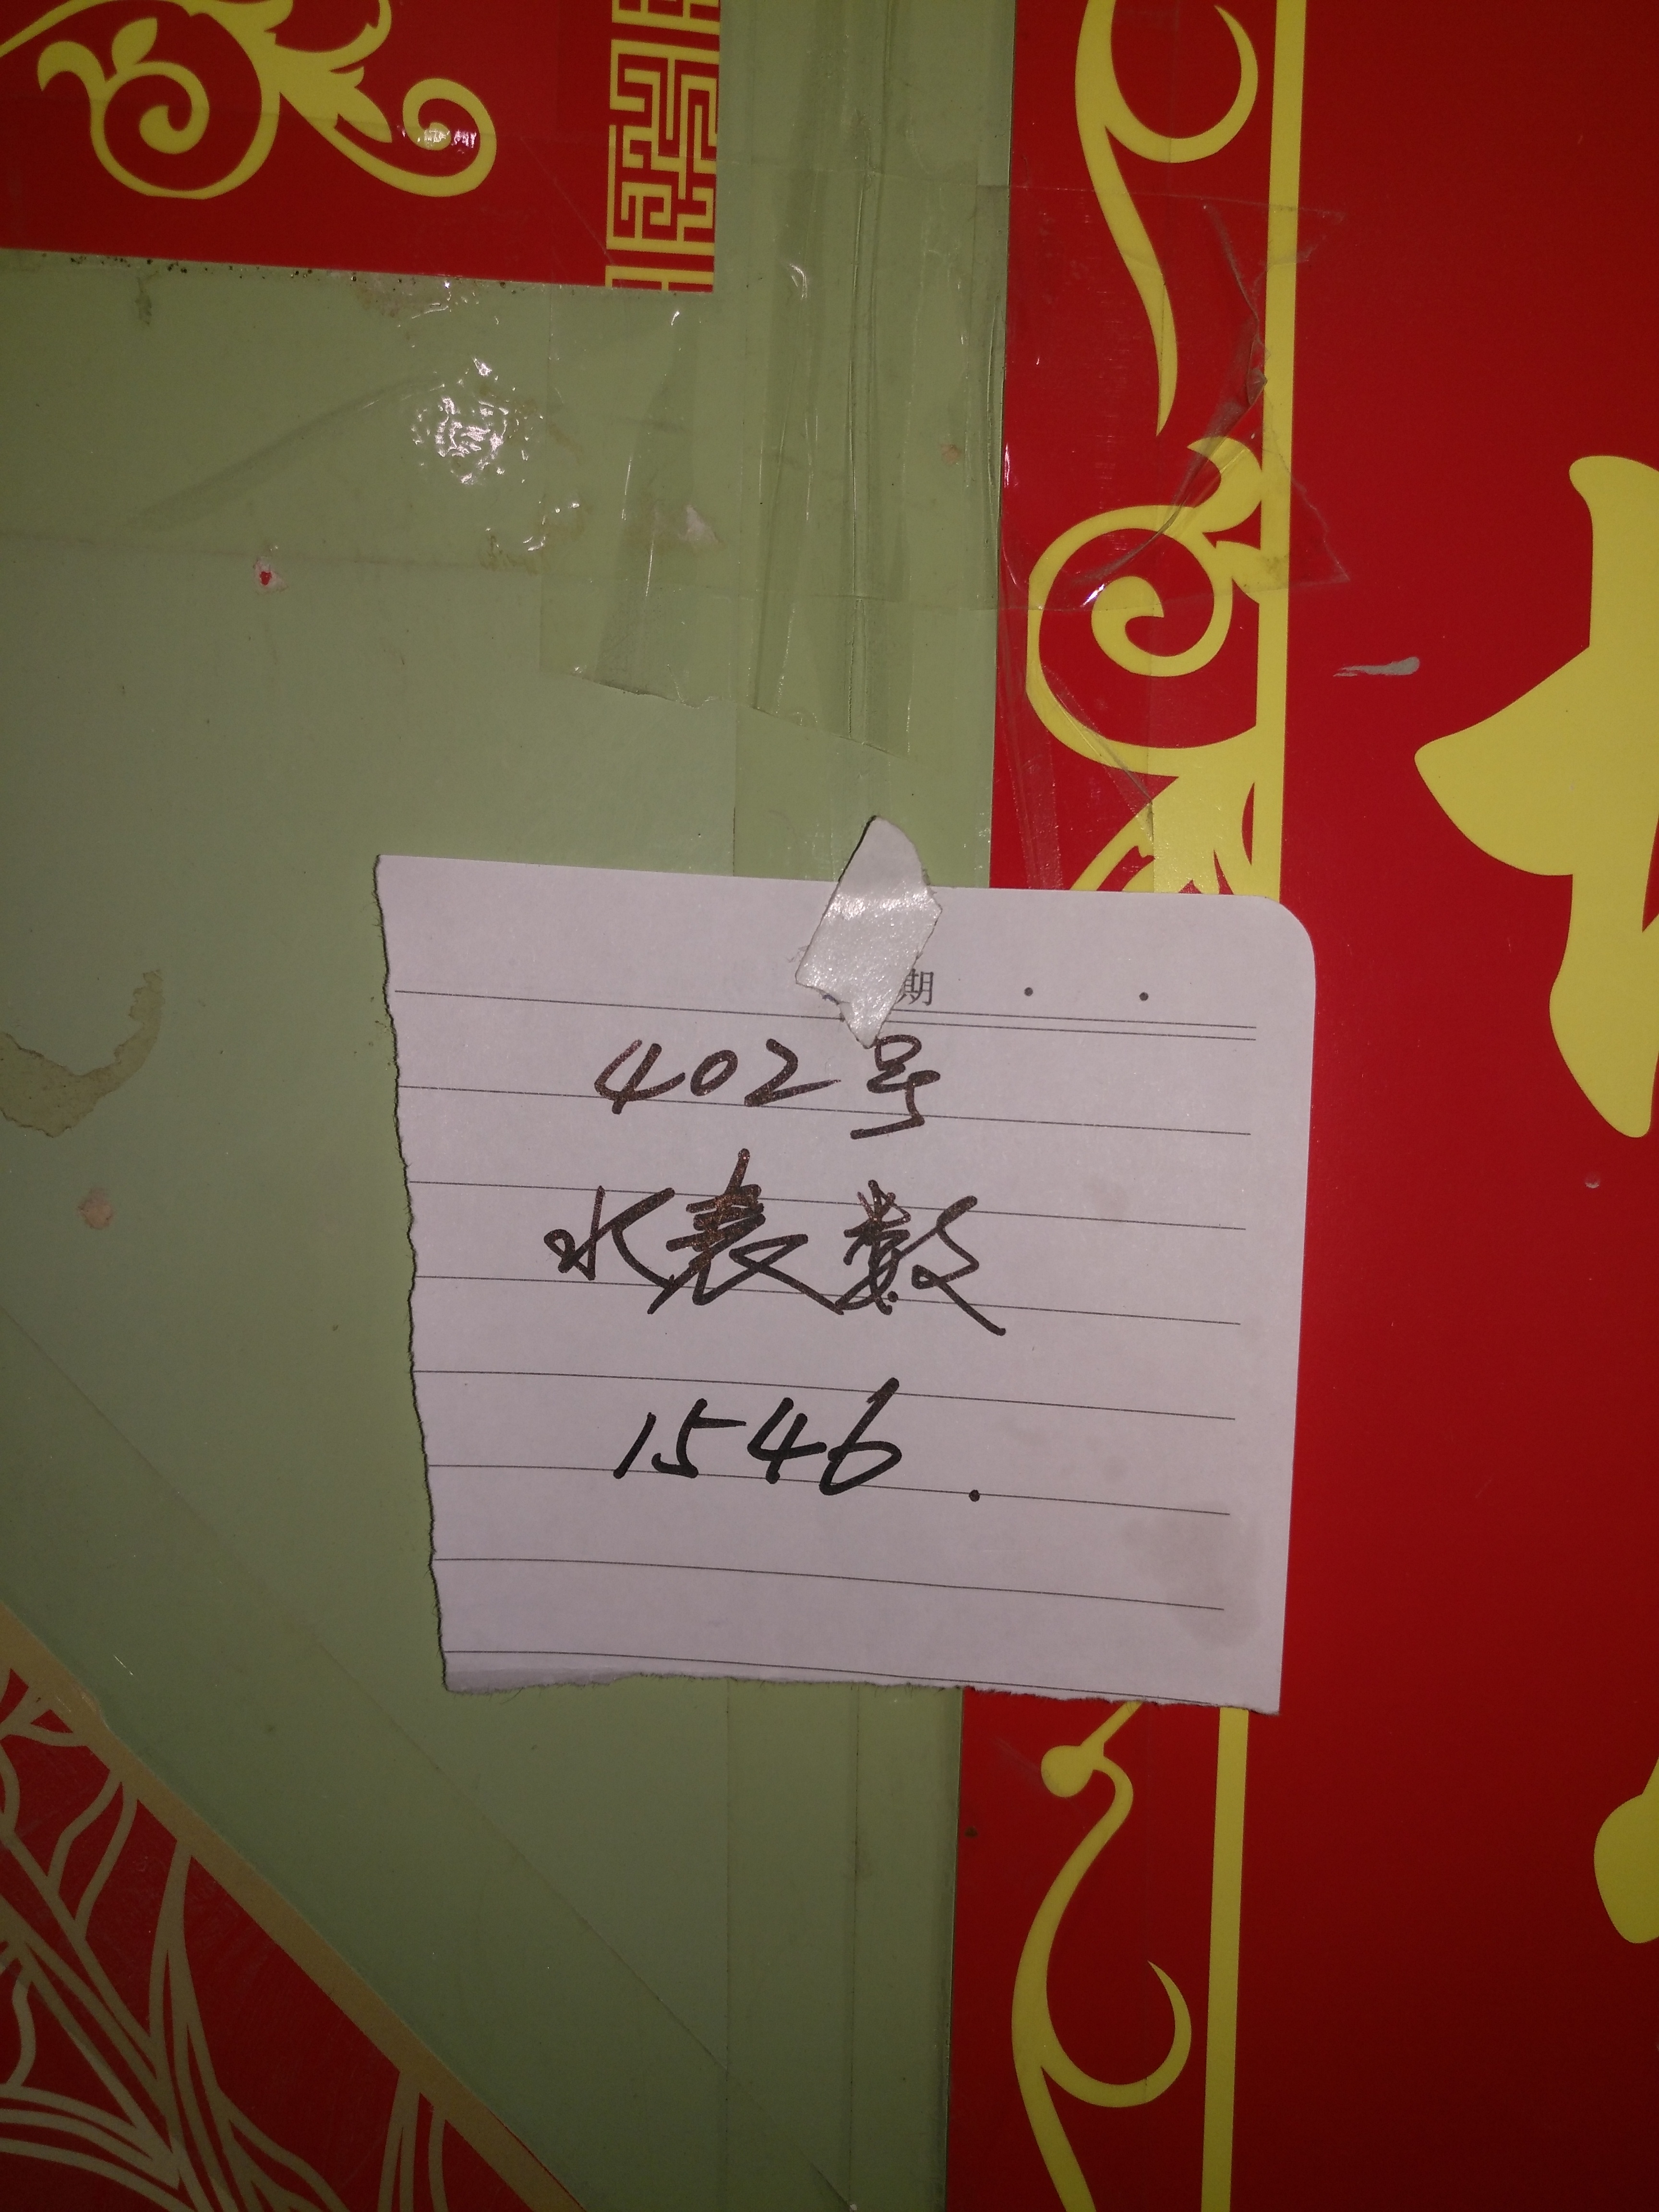 期 . .
402号
水表数
1546.